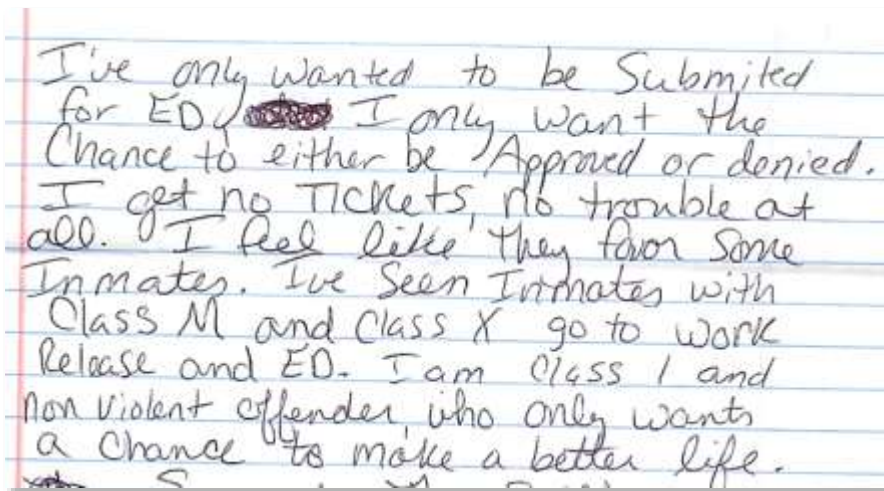 I've only wanted to be Submited
for ED, I only want the
Chance to either be Approved or denied.
I get no TICKets, no trouble at
all. I feel like they favor Some
Inmates. Ive Seen Inmates with
Class M and Class X go to work
Release and ED. I am Class 1 and
non violent offender, who only wants
a Chance to make a better life.